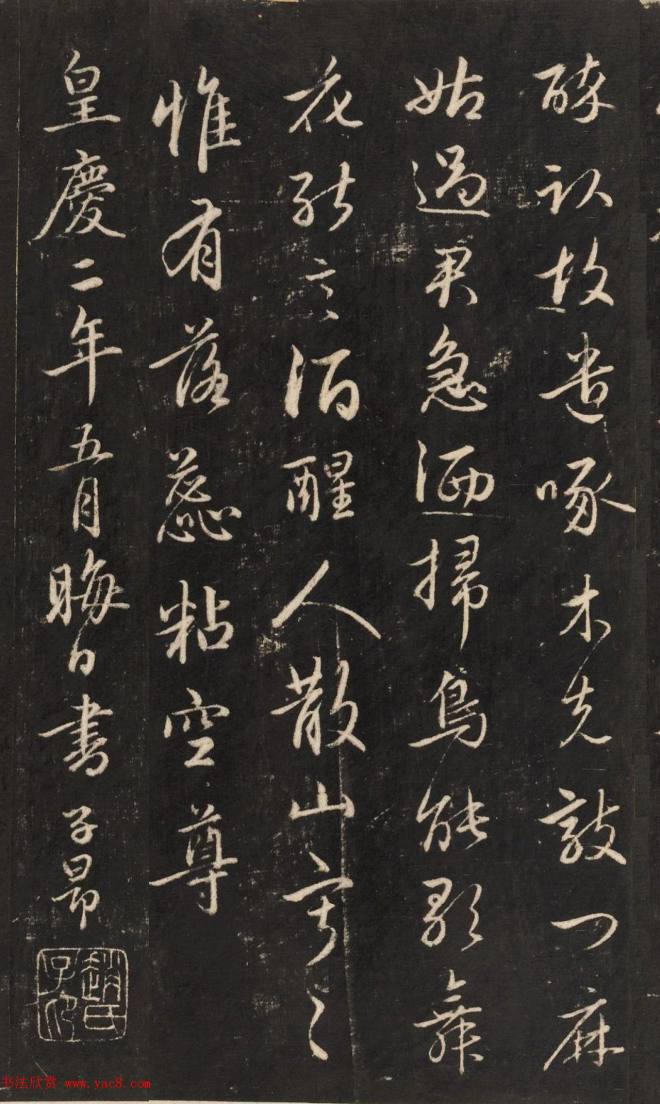 醉臥故遣啄木先敲門麻
姑過君急洒掃鳥能歌舞
花能言酒醒人散山寂〻
惟有落蕊粘空尊
皇慶二年五月晦日書子昂
趙氏子昂
书法欣赏 www.yac8.com